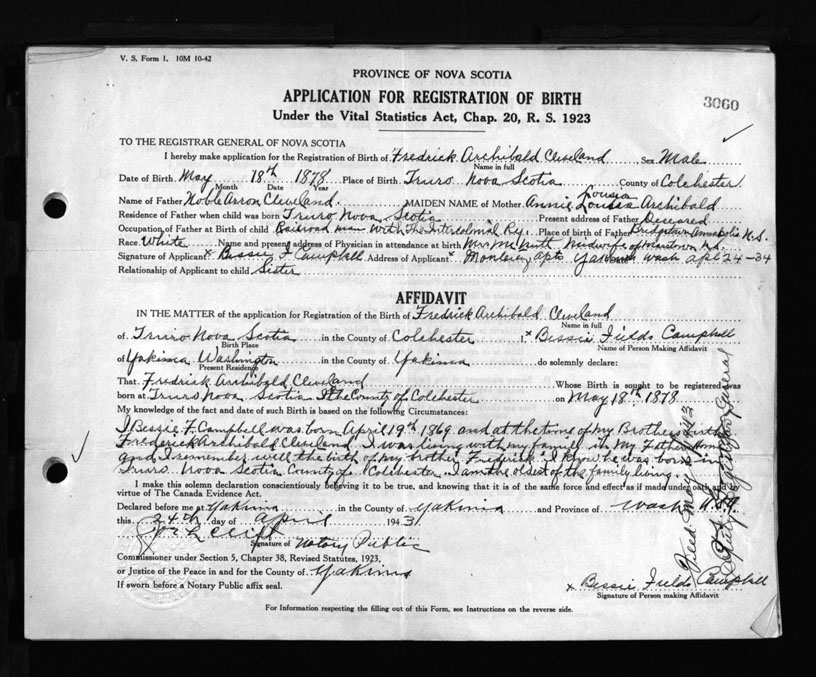 V. S. Form 1. 10M 10-42
PROVINCE OF NOVA SCOTIA
3060
APPLICATION FOR REGISTRATION OF BIRTH
Under the Vital Statistics Act, Chap. 20, R. S. 1923
TO THE REGISTRAR GENERAL OF NOVA SCOTIA
I hereby make application for the Registration of Birth of Fredrick Archibald Cleveland Sex Male
Name in full
Date of Birth May 18th 1878 Place of Birth Truro Nova Scotia County of Colchester
Month Date Year
Name of Father Noble Arron Cleveland MAIDEN NAME of Mother Annie Louisa Archibald
Residence of Father when child was born Truro Nova Scotia Present address of Father Deseased
Occupation of Father at Birth of child Railroad man with The Intercolonial Ry. Place of Birth of Father Bridgetown Annapolis N.S.
Race White Name and present address of Physician in attendance at birth Mrs McNutt Midwife of
Signature of Applicant x Bessie F Campbell Address of Applicant x Monterey Apts Yakima Wash Date Apl 24-
Relationship of Applicant to child Sister
AFFIDAVIT
IN THE MATTER of the application for Registration of the Birth of Fredrick Archibald Cleveland
Name in full
of Truro Nova Scotia in the County of Colchester I, x Bessie Fields Campbell
Birth Place Name of Person Making Affidavit
of Yakima Washington in the County of Yakima do solemnly declare:
Present Residence
That Fredrick Archibald Cleveland Whose Birth is sought to be registered was
born at Truro Nova Scotia The County of Colchester on May 18th 1878
My knowledge of the fact and date of such Birth is based on the following Circumstances:
I Bessie F. Campbell was born April 19th 1869 and at the time of my Brothers birth
Frederick Archibald Cleveland I was living with my family in My Fathers Home
and I remember well the birth of my brother Fredrick. I know he was born in
Truro Nova Scotia County of Colchester. I am the oldest of the family living.
I make this solemn declaration conscientiously believing it to be true, and knowing that it is of the same force and effect as if made under oath and by
virtue of The Canada Evidence Act.
Declared before me at Yakima in the County of Yakima and Province of Wash U.S.A.
this 24th day of April 1943
Signature of Notary Public
Commissioner under Section 5, Chapter 38, Revised Statutes, 1923,
or Justice of the Peace in and for the County of Yakima
If sworn before a Notary Public affix seal.
x Bessie Fields Campbell
Signature of Person making Affidavit
For Information respecting the filling out of this Form, see Instructions on the reverse side.
Deputy Registrar General